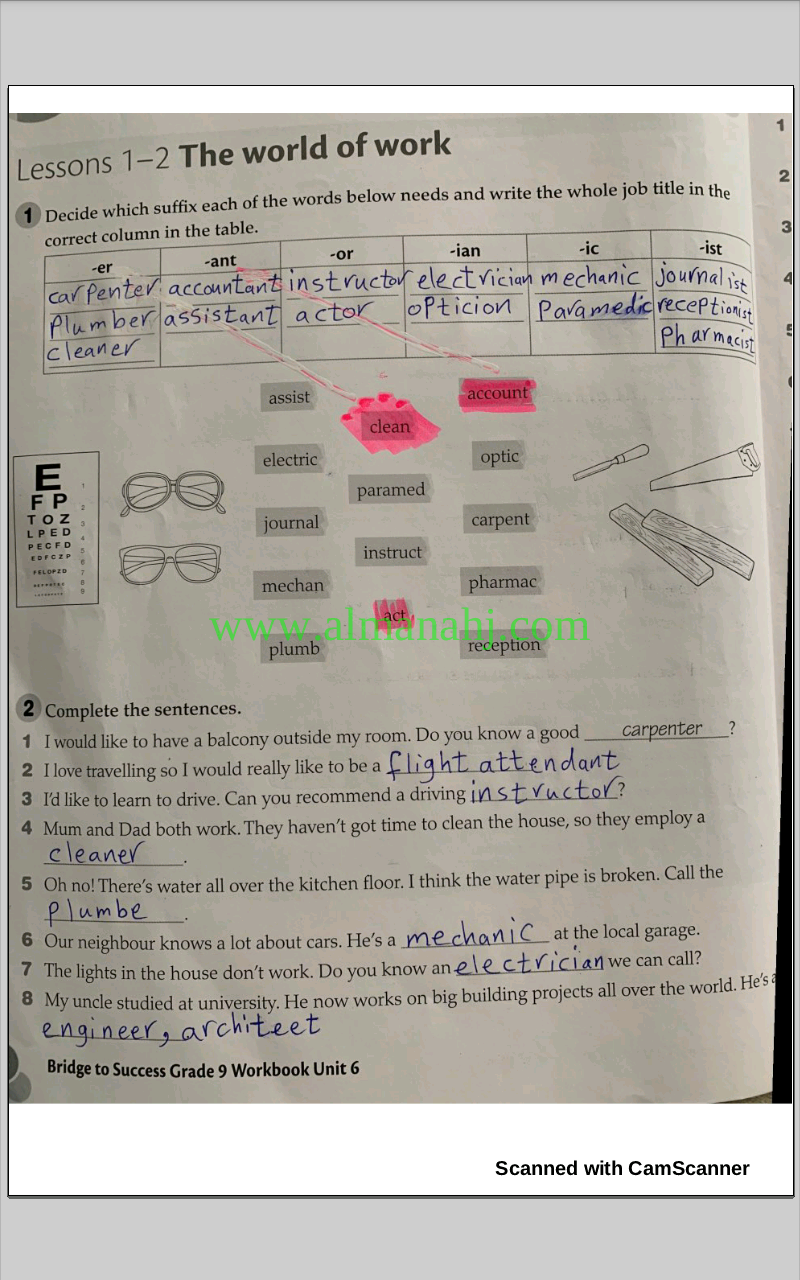 Lessons 1–2 The world of work
1 Decide which suffix each of the words below needs and write the whole job title in the
correct column in the table.
-er -ant -or -ian -ic -ist
carpenter accountant instructor electrician mechanic journalist
Plumber assistant actor opticion Paramedic receptionist
cleaner Pharmacist
assist clean account
electric paramed optic
journal instruct carpent
mechan act pharmac
plumb reception
E
F P
T O Z
L P E D
P E C F D
E D F C Z P
F E L O P Z D
www.almanahj.com
2 Complete the sentences.
1 I would like to have a balcony outside my room. Do you know a good carpenter ?
2 I love travelling so I would really like to be a flight attendant
3 I'd like to learn to drive. Can you recommend a driving instructor?
4 Mum and Dad both work. They haven't got time to clean the house, so they employ a
cleaner .
5 Oh no! There's water all over the kitchen floor. I think the water pipe is broken. Call the
plumbe .
6 Our neighbour knows a lot about cars. He's a mechanic at the local garage.
7 The lights in the house don't work. Do you know an electrician we can call?
8 My uncle studied at university. He now works on big building projects all over the world. He's a
engineer, architeet
Bridge to Success Grade 9 Workbook Unit 6
1
2
3
4
5
Scanned with CamScanner